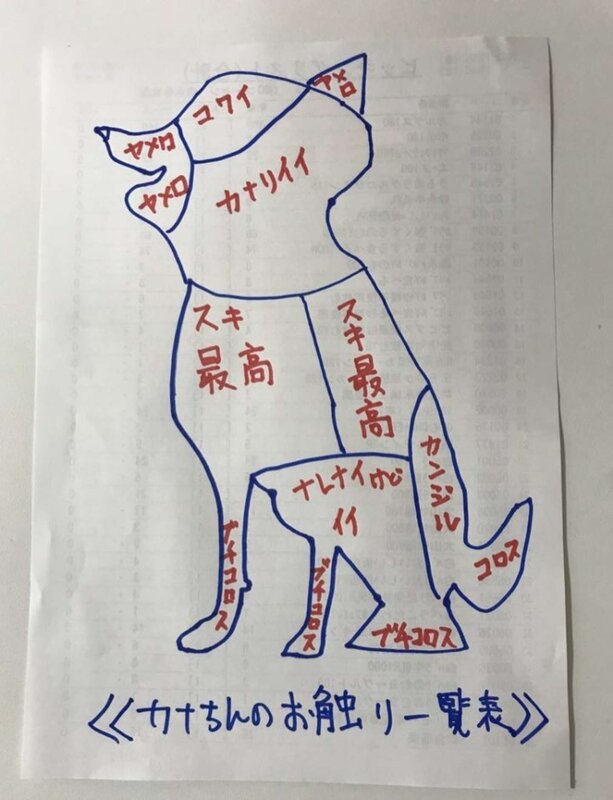 ヤメロ
コワイ
ヤメロ
ヤメロ
カナリイイ
スキ
最高
スキ最高
ナレナイけど
イイ
カンジル
コロス
ブチコロス
ブチコロス
ブチコロス
≪カナちんのお触り一覧表≫